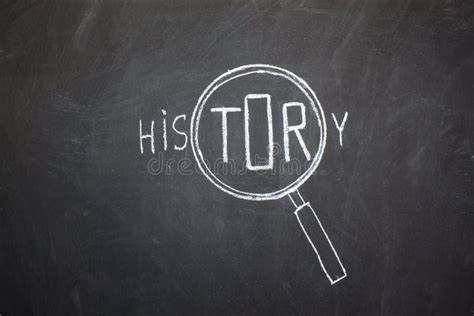 HiSTORY
dreamstime